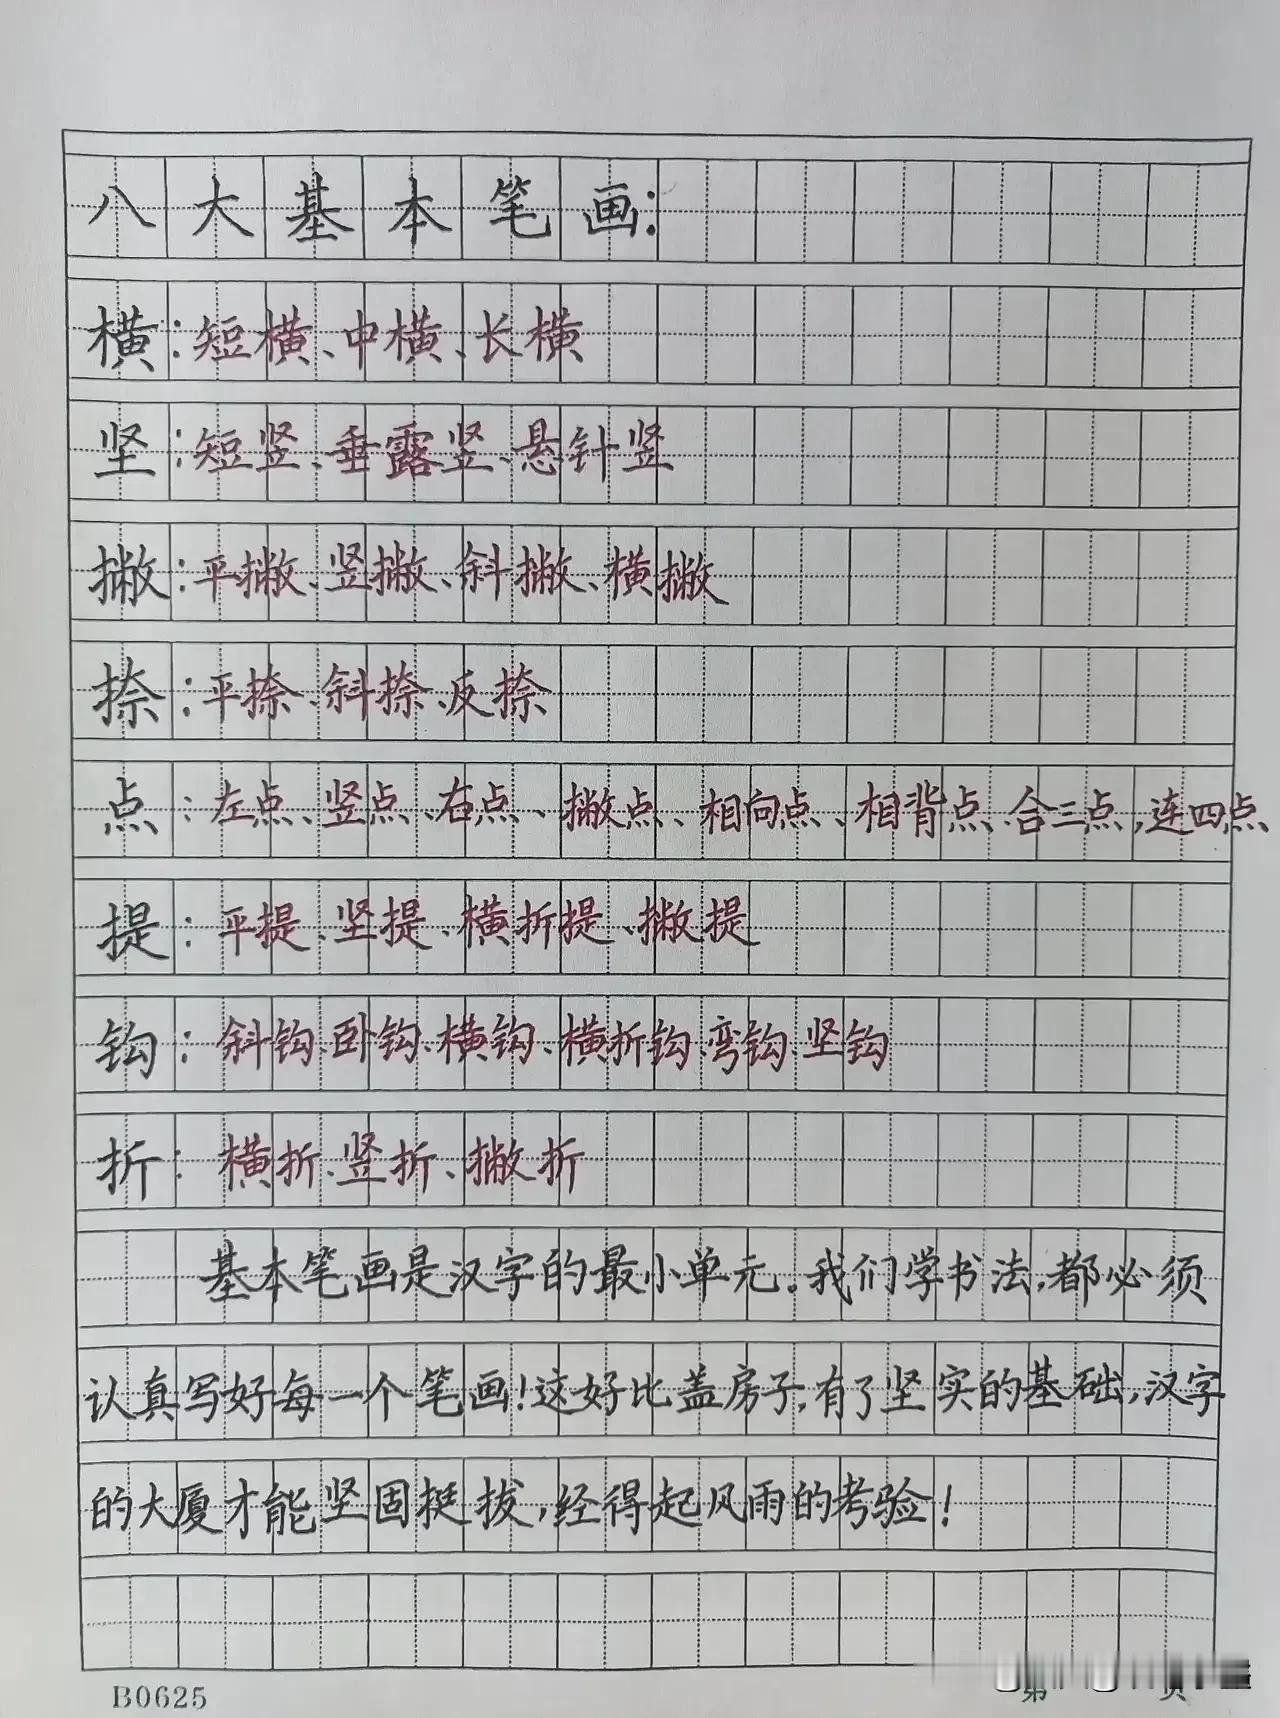 八大基本笔画:
横:短横、中横、长横
坚:短竖、垂露竖、悬针竖
撇:平撇、竖撇、斜撇、横撇
捺:平捺、斜捺、反捺
点:左点、竖点、右点、撇点、相向点、相背点、合三点,连四点
提:平提、坚提、横折提、撇提
钩:斜钩、卧钩、横钩、横折钩、弯钩、坚钩
折:横折、竖折、撇折
基本笔画是汉字的最小单元。我们学书法,都必须
认真写好每一个笔画!这好比盖房子,有了坚实的基础,汉字
的大厦才能坚固挺拔,经得起风雨的考验!
B0625